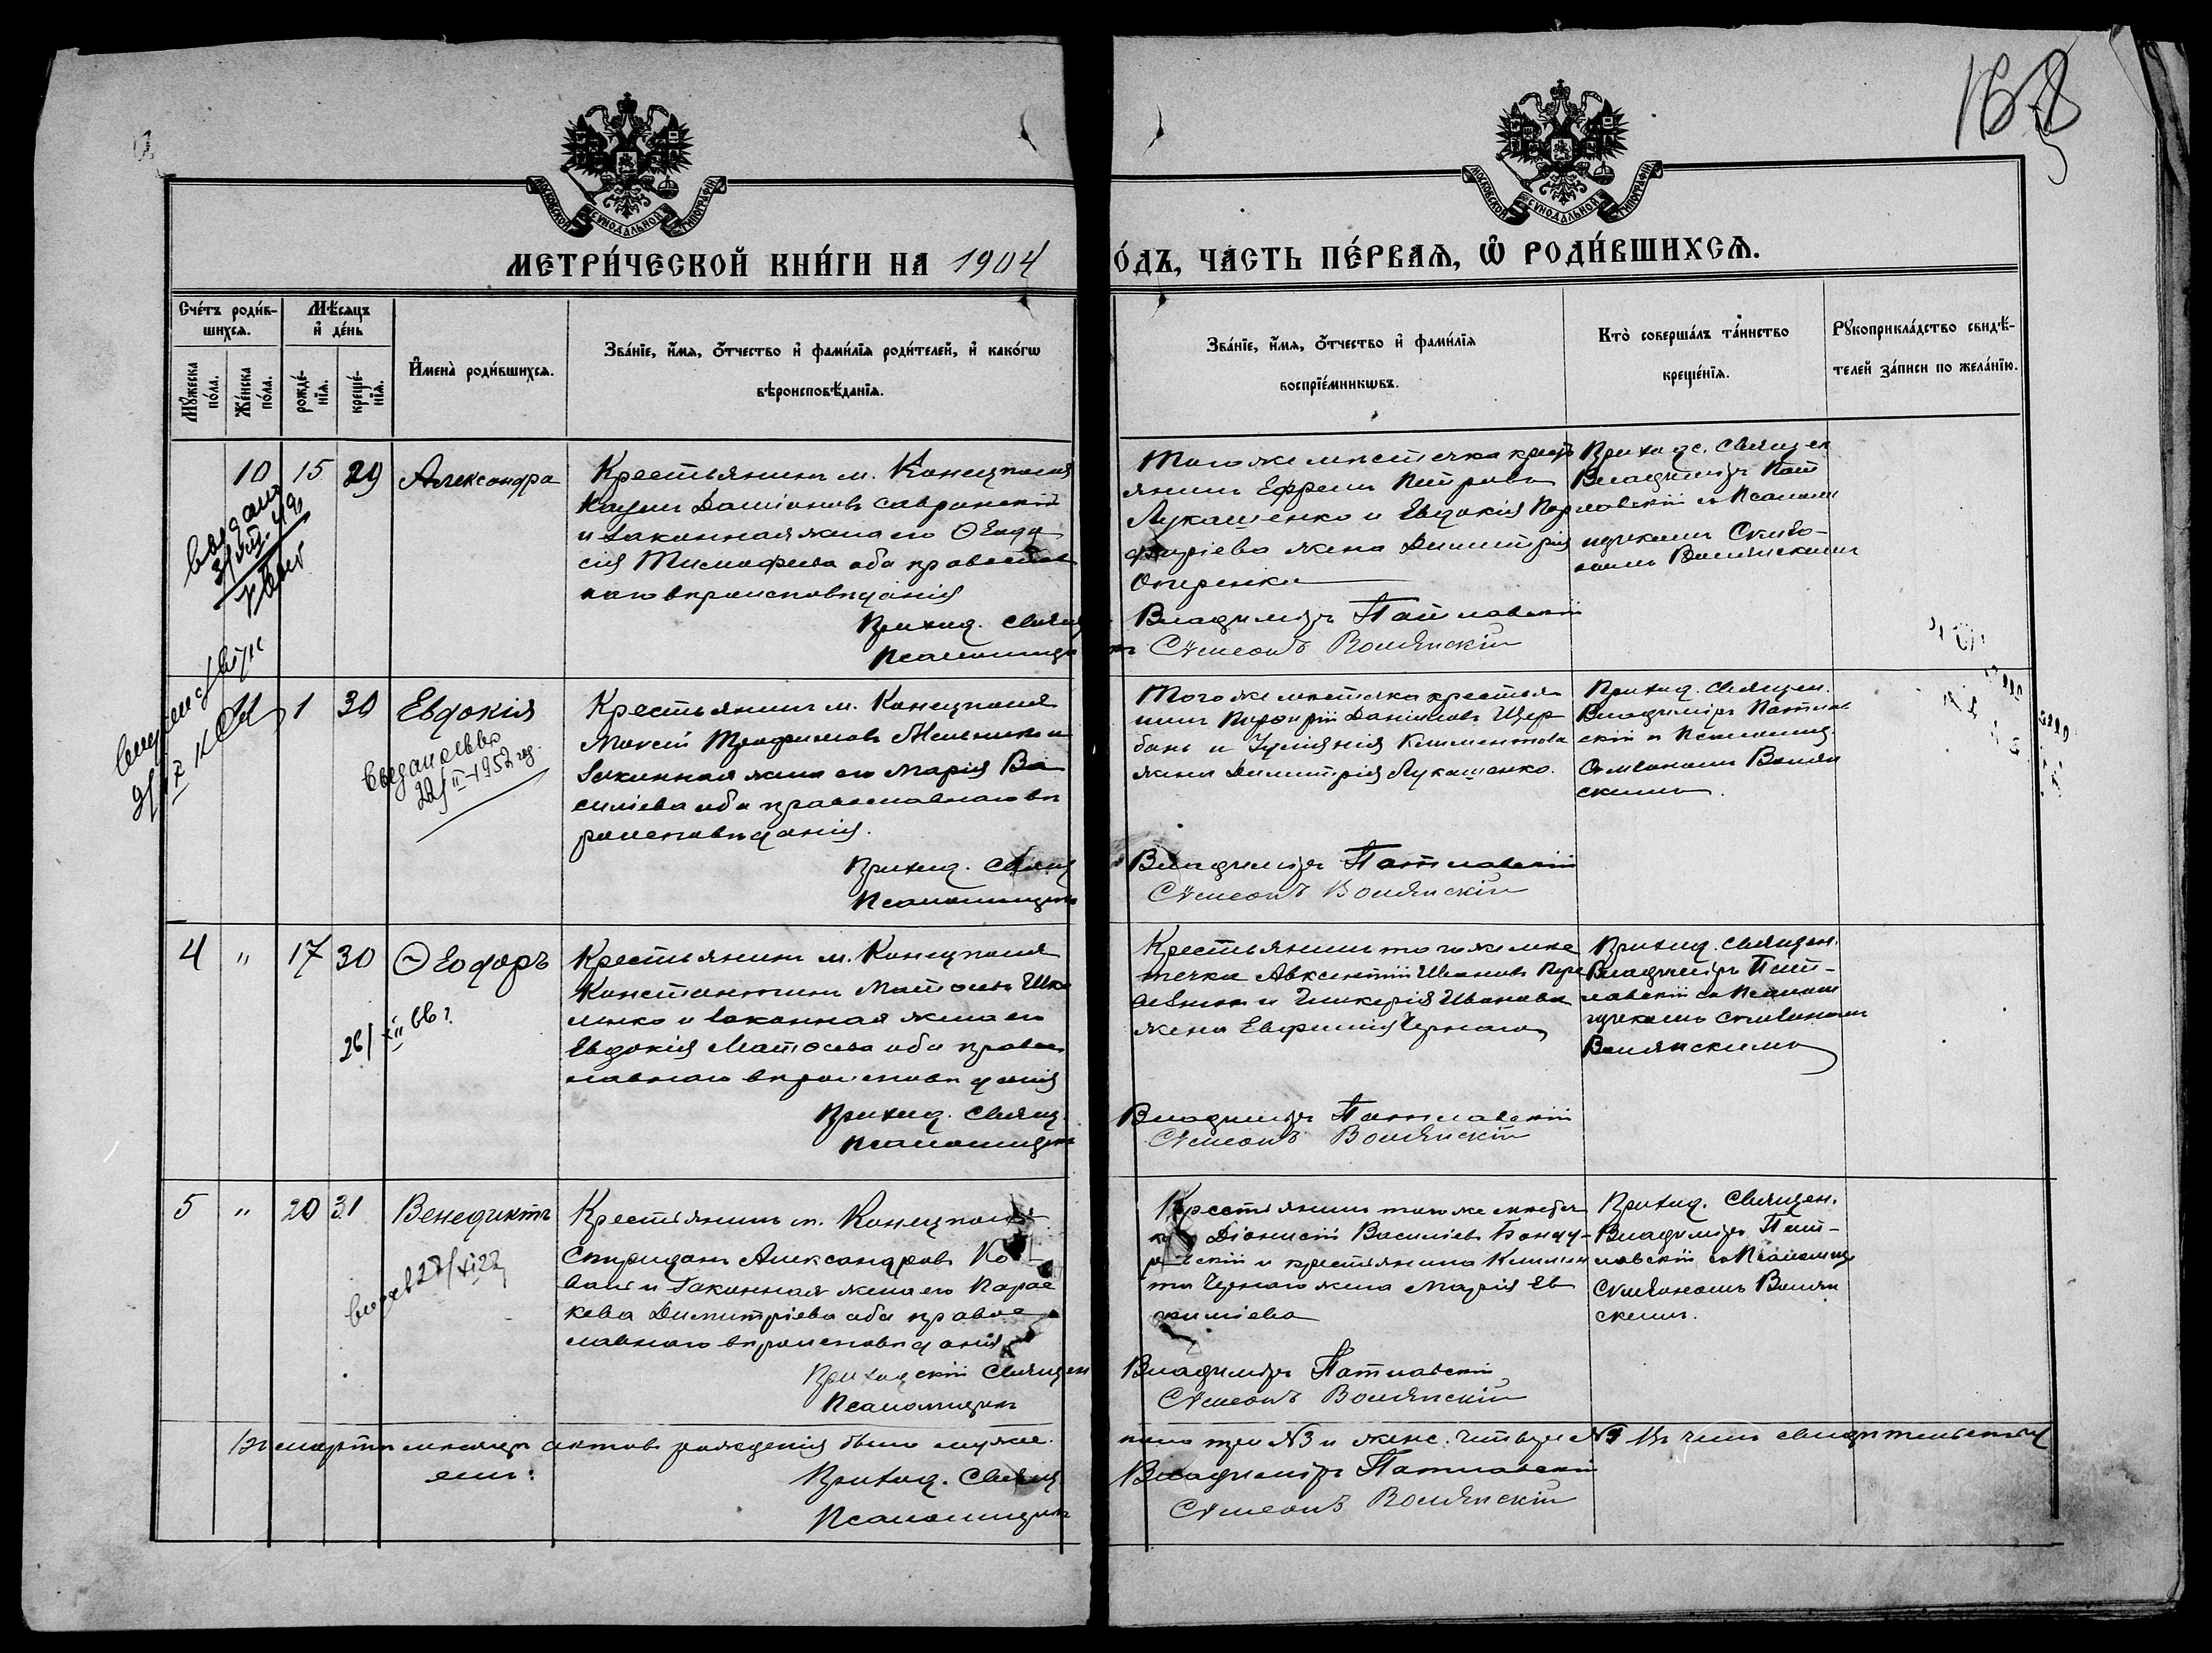 168
МОСКОВСКОЙ СУНОДАЛЬНОЙ ТИПОГРАФІИ
МОСКОВСКОЙ СУНОДАЛЬНОЙ ТИПОГРАФІИ
МЕТРИ́ЧЕСКОЙ КНИ́ГИ НА 1904
О́ДЪ, ЧА́СТЬ ПЕ́РВАѦ, Ѽ РОДИ́ВШИХСѦ.
Сче́тъ роди́в-
шихсѧ.
Мꙋ́жеска
по́ла.
Же́нска
по́ла.
Мѣ́сѧцъ
и҆ де́нь
рожде́-
нїѧ.
креще́-
нїѧ.
И҆мена̀ роди́вшихсѧ.
Зва́нїе, и҆́мѧ, ѻ҆́тчество и҆ фами́лїѧ роди́телей, и҆ како́гѡ
вѣроисповѣ́данїѧ.
Зва́нїе, и҆́мѧ, ѻ҆́тчество и҆ фами́лїѧ
воспрїе́мникѡвъ.
Кто̀ соверша́лъ та́инство
креще́нїѧ.
Рꙋкоприкла́дство свидѣ́-
телей за́писи по жела́нїю.
10 15 29 Александра
Крестьянинъ м. Конецполя
Даміановъ Савранскій
и законная жена его Ѳеодо
сія Тимофеева оба православ
наго вѣроисповѣданія
Приход. Свящ
Псаломщи
Того же мѣстечка крест
янинъ Ефремъ Петровъ
Лукашенко и Евдокія Пор
фиріева жена Димитрія
Владиміръ Патлавскій
Сѵмеонъ Волянскій
Приходс. Священ
Владиміръ Пат
лавскій съ Псалом
щикомъ Сѵмео-
номъ Волянскимъ
1 30 Евдокія
22/II-1952 год.
Крестьянинъ м. Конецполя
Моисей Трофимовъ Мельникъ и
Законная жена его Марія Ва
силіева оба православнаго вѣ
роисповѣданія.
Приход. Свящ
Псаломщикъ
Того же мѣстечка крестья
нинъ Порфирій Даніиловъ Щер
бань и Іуліанія Климентова
жена Димитрія Лукашенко.
Владиміръ Патлавскій
Сѵмеонъ Волянскій
Приход. Священ.
Владиміръ Патлав
скій съ Псаломщ.
Сѵмеономъ Волян
скимъ.
4 " 17 30 Ѳеодоръ
26/XII 66 г
Крестьянинъ м. Конецполя
Константинъ Матѳеевъ
и законная жена его
Евдокія Матѳеева оба правос
лавнаго вѣроисповѣданія
Приход. Свящ.
Псаломщикъ
Крестьянинъ того же мѣс
течка Авксентій Ивановъ
и Гликерія Иванова
жена Евфимія Чернаго
Владиміръ Патлавскій
Сѵмеонъ Волянскій
Приход. Священ.
Владиміръ Пат-
лавскій съ Псалом
щикомъ Сѵмеономъ
Волянскимъ
5 " 20 31 Венедиктъ
Крестьянинъ м. Конецполя
Спиридонъ Александровъ Ко
валь и Законная жена его Парас
кева Димитріева оба правос
лавнаго вѣроисповѣданія
Приходскій Священ
Псаломщикъ
Крестьянинъ того же мѣстеч
Діонисій Василіевъ Бонду-
скій и крестьянина Климен
та Чернаго жена Марія Ев
Владиміръ Патлавскій
Сѵмеонъ Волянскій
Приход. Священ.
Владиміръ Пат-
лавскій съ Псаломщ
Сѵмеономъ Волян
скимъ.
Въ мартѣ мѣсяцѣ актовъ рожденія было мужес
каго три №3 и женс. четыре Въ чемъ свидѣтельствує
емъ:
Приход. Свящ
Псаломщикъ
Владиміръ Патлавскій
Сѵмеонъ Волянскій